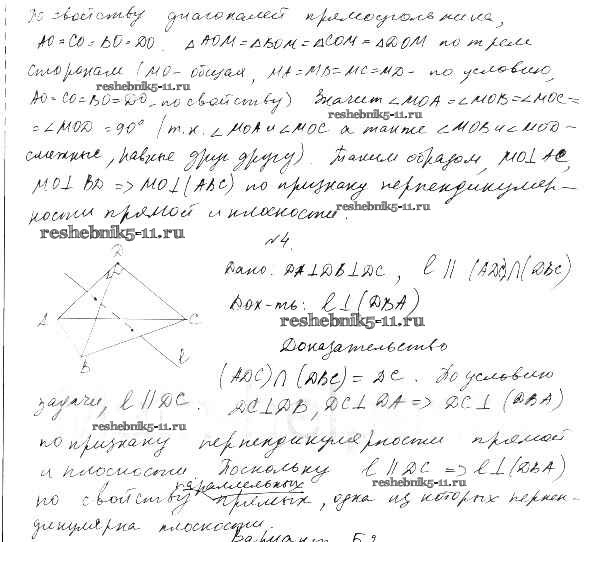 По свойству диагоналей прямоугольника,
AO=CO=BO=DO. △AOM=△BOM=△COM=△DOM по трем
сторонам (MO- общая, MA=MB=MC=MD- по условию,
reshebnik5-11.ru
AO=CO=BO=DO -по свойству) Значит ∠MOA=∠MOB=∠MOC=
reshebnik5-11.ru
=∠MOD=90° (т.к. ∠MOA и ∠MOC а также ∠MOB и ∠MOD-
смежные, равные друг другу). Таким образом, MO⊥AC,
MO⊥BD => MO⊥(ABC) по признаку перпендикуляр-
reshebnik5-11.ru
ности прямой и плоскости.
reshebnik5-11.ru
№4.
D
A
C
B
l
Дано: DA⊥DB⊥DC, l ∥ (ADC)∩(DBC)
Док-ть: l⊥(DBA)
reshebnik5-11.ru
Доказательство
(ADC)∩(DBC)=DC. По условию
задачи, l∥DC. DC⊥DB, DC⊥DA => DC⊥(DBA)
reshebnik5-11.ru
по признаку перпендикулярности прямой
и плоскости Поскольку l∥DC => l⊥(DBA)
reshebnik5-11.ru
по свойству параллельных прямых, одна из которых перпен-
дикулярна плоскости.
Вариант Б2